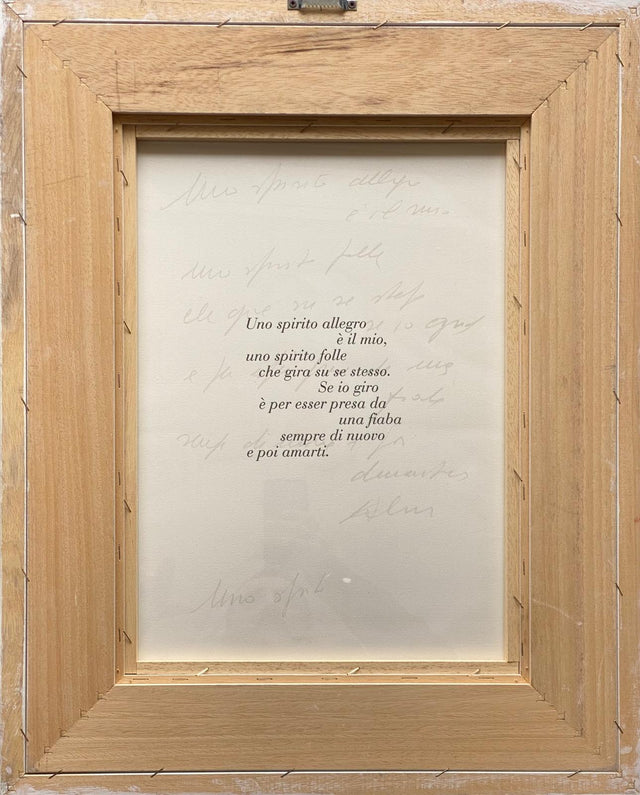 Uno spirito allegro
è il mio
uno spirito folle
che gira su se stesso
Se io giro
Uno spirito allegro
è il mio,
uno spirito folle
che gira su se stesso.
Se io giro
è per esser presa da
una fiaba
sempre di nuovo
e poi amarti.
Uno spirito